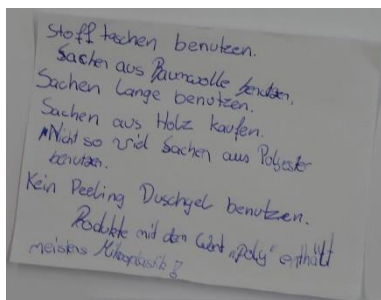 Stofftaschen benutzen.
Sachen aus Baumwolle benutzen.
Sachen Lange benutzen.
Sachen aus Holz kaufen.
Nicht so viel Sachen aus Polyester
benutzen.
Kein Peeling Duschgel benutzen.
Produkte mit dem Wort „Poly“ enthält
meistens Mikroplastik!